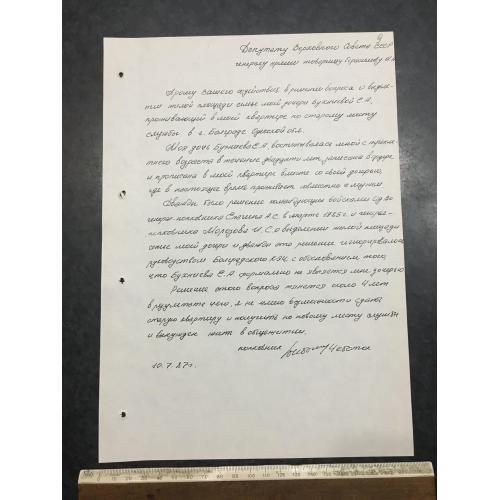 Депутату Верховного Совета СССР
генералу армии товарищу
Прошу Вашего содействия в решении вопроса о выделе-
нии жилой площади семье моей дочери Бухниевой Е.А.,
проживающей в моей квартире по старому месту
службы в г. Болграде Одесской обл.
Моя дочь Бухниева Е.А. воспитывалась мной с
возраста в течение двадцати лет, записана в
и прописана в моей квартире вместе со своей дочерью,
где в настоящее время проживает совместно с мужем
Дважды было решение командующих войсками
генерал-полковника Елагина А.С. в марте 1985 г. и генерал-
полковника Морозова И.С. о выделении жилой площади
семье моей дочери и дважды это решение игнорировалось
руководством Болградской КЭЧ, с обоснованием того,
что Бухниева Е.А. формально не является мне дочерью
Решение этого вопроса тянется около 4 лет
в результате чего, я не имею возможности сдать
старую квартиру и получить по новому месту службы
и вынужден жить в общежитии.
полковник
10.7.87г.